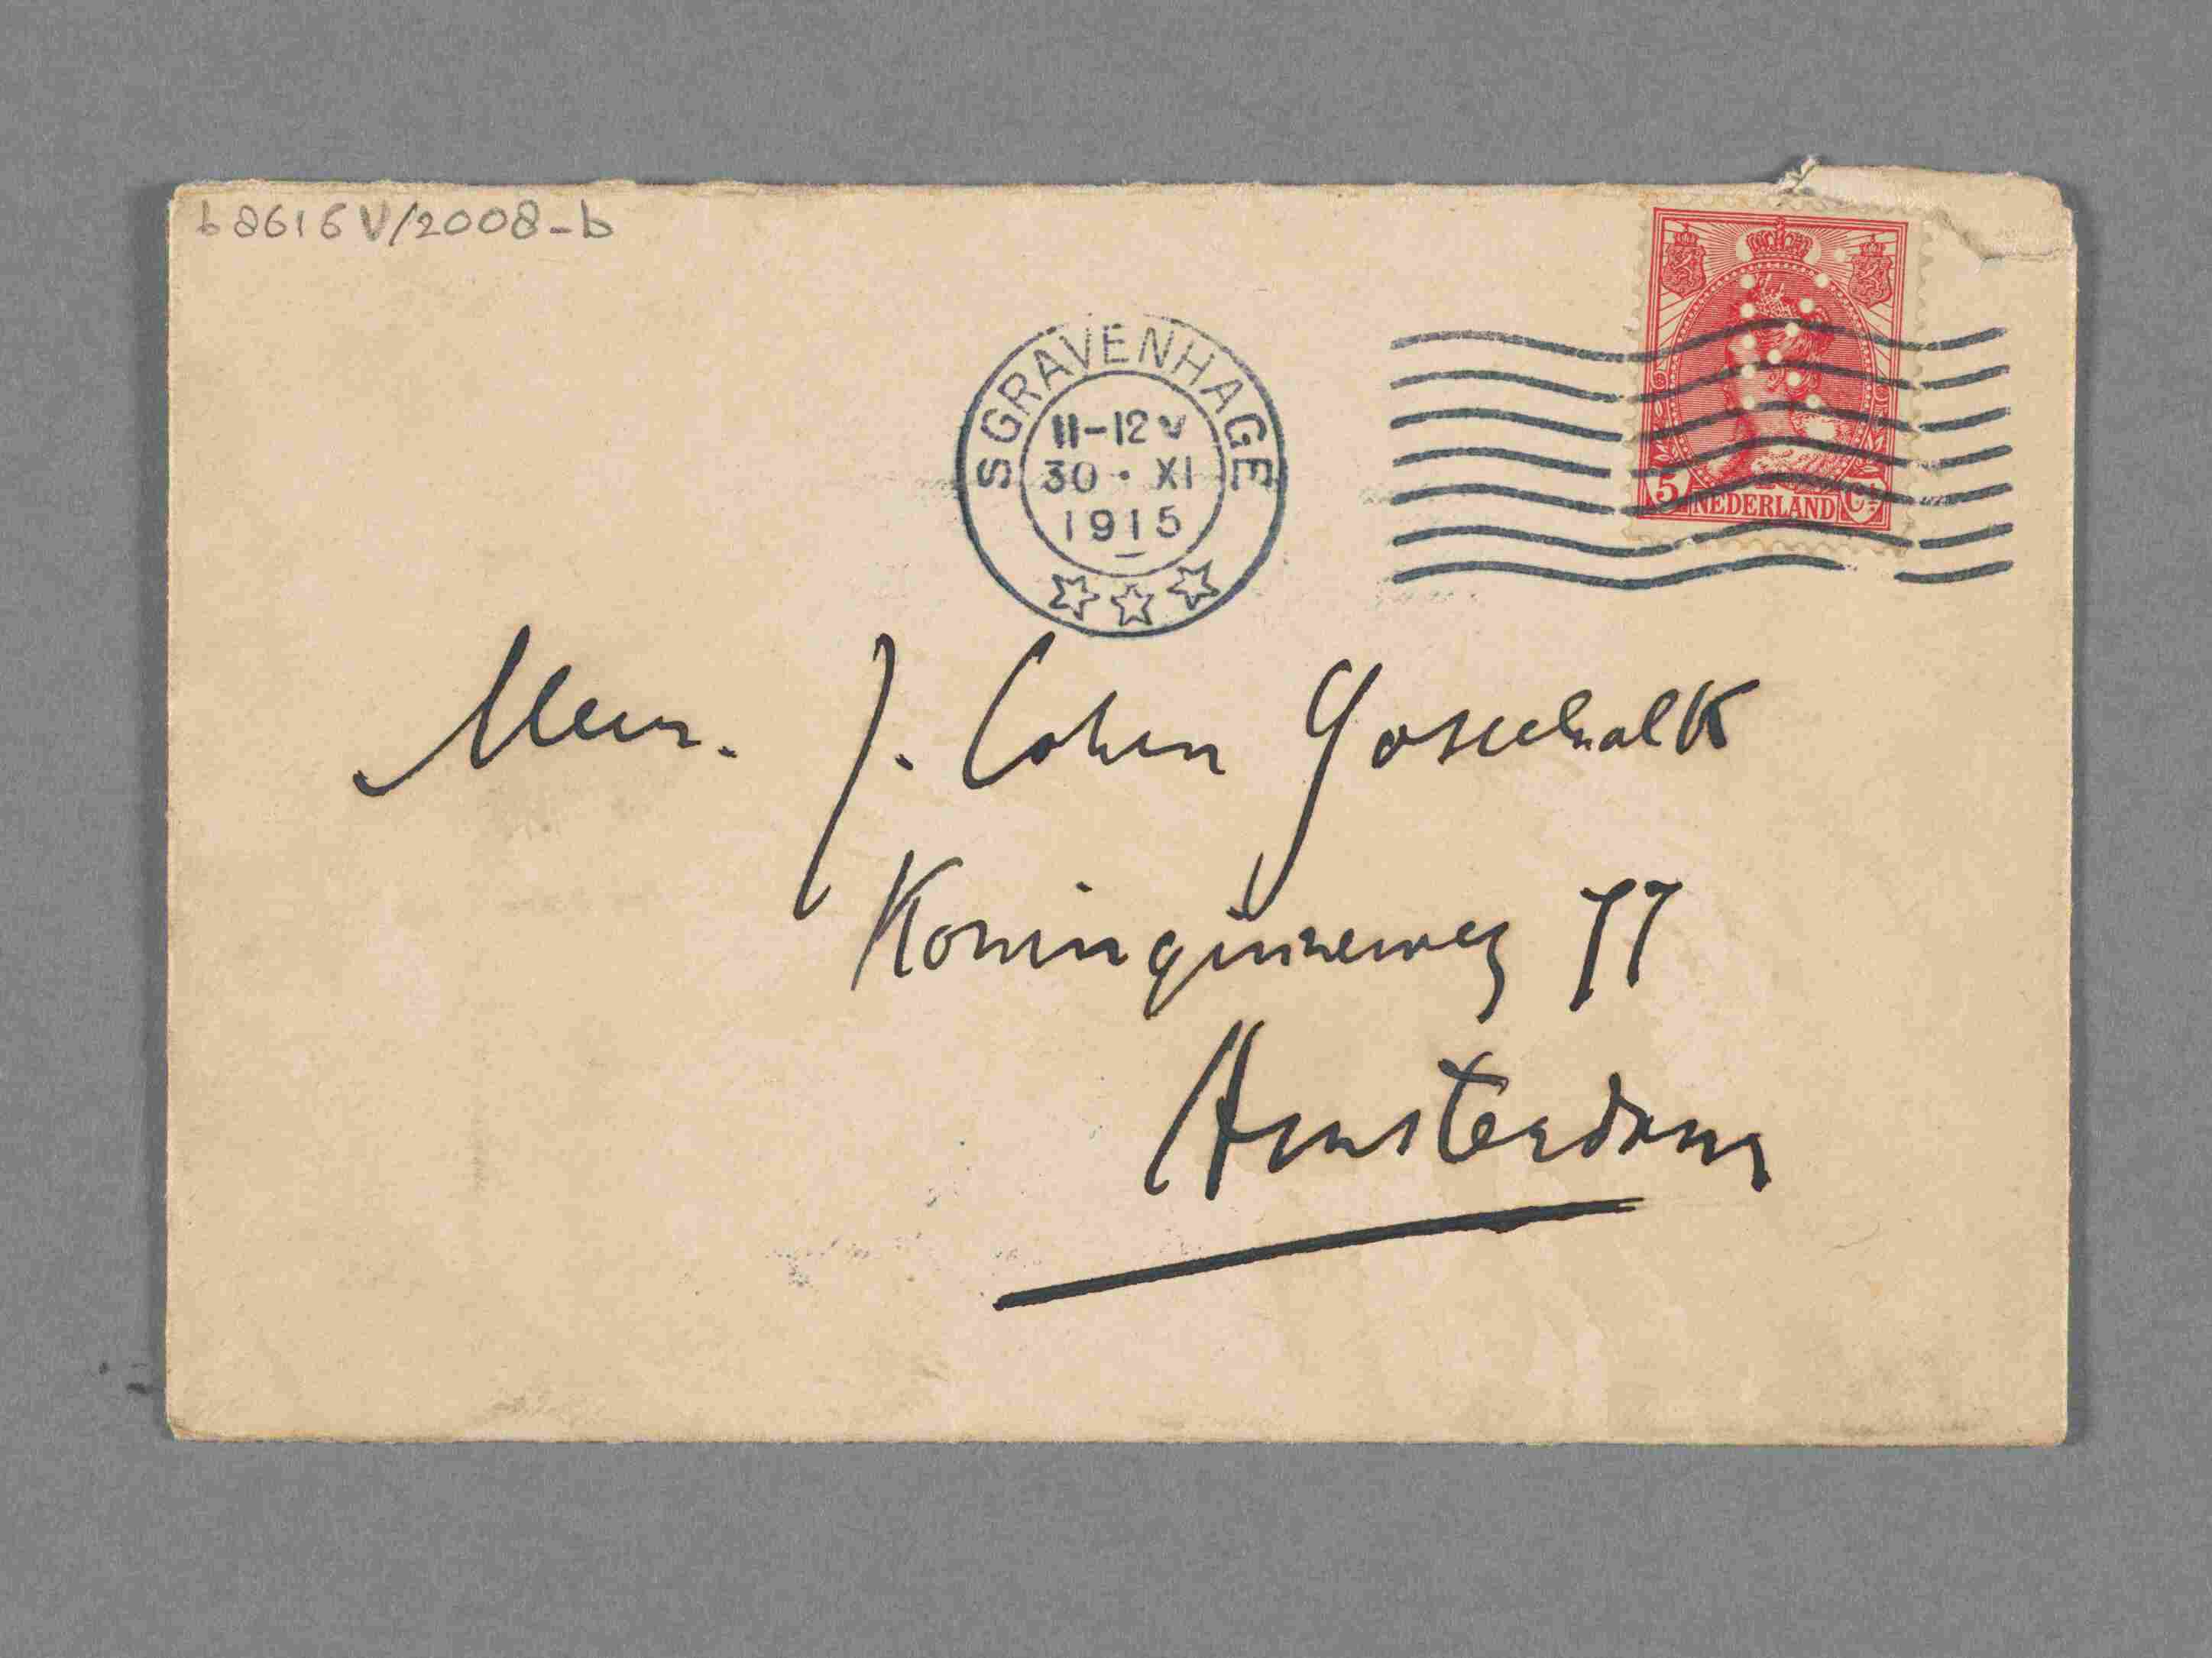 b 8616 V/2008-b
SGRAVENHAGE
11-12 V
30 · XI
1915
5 NEDERLAND Ct
Mevr. J. Cohen Gosschalk
Koninginneweg 77
Amsterdam